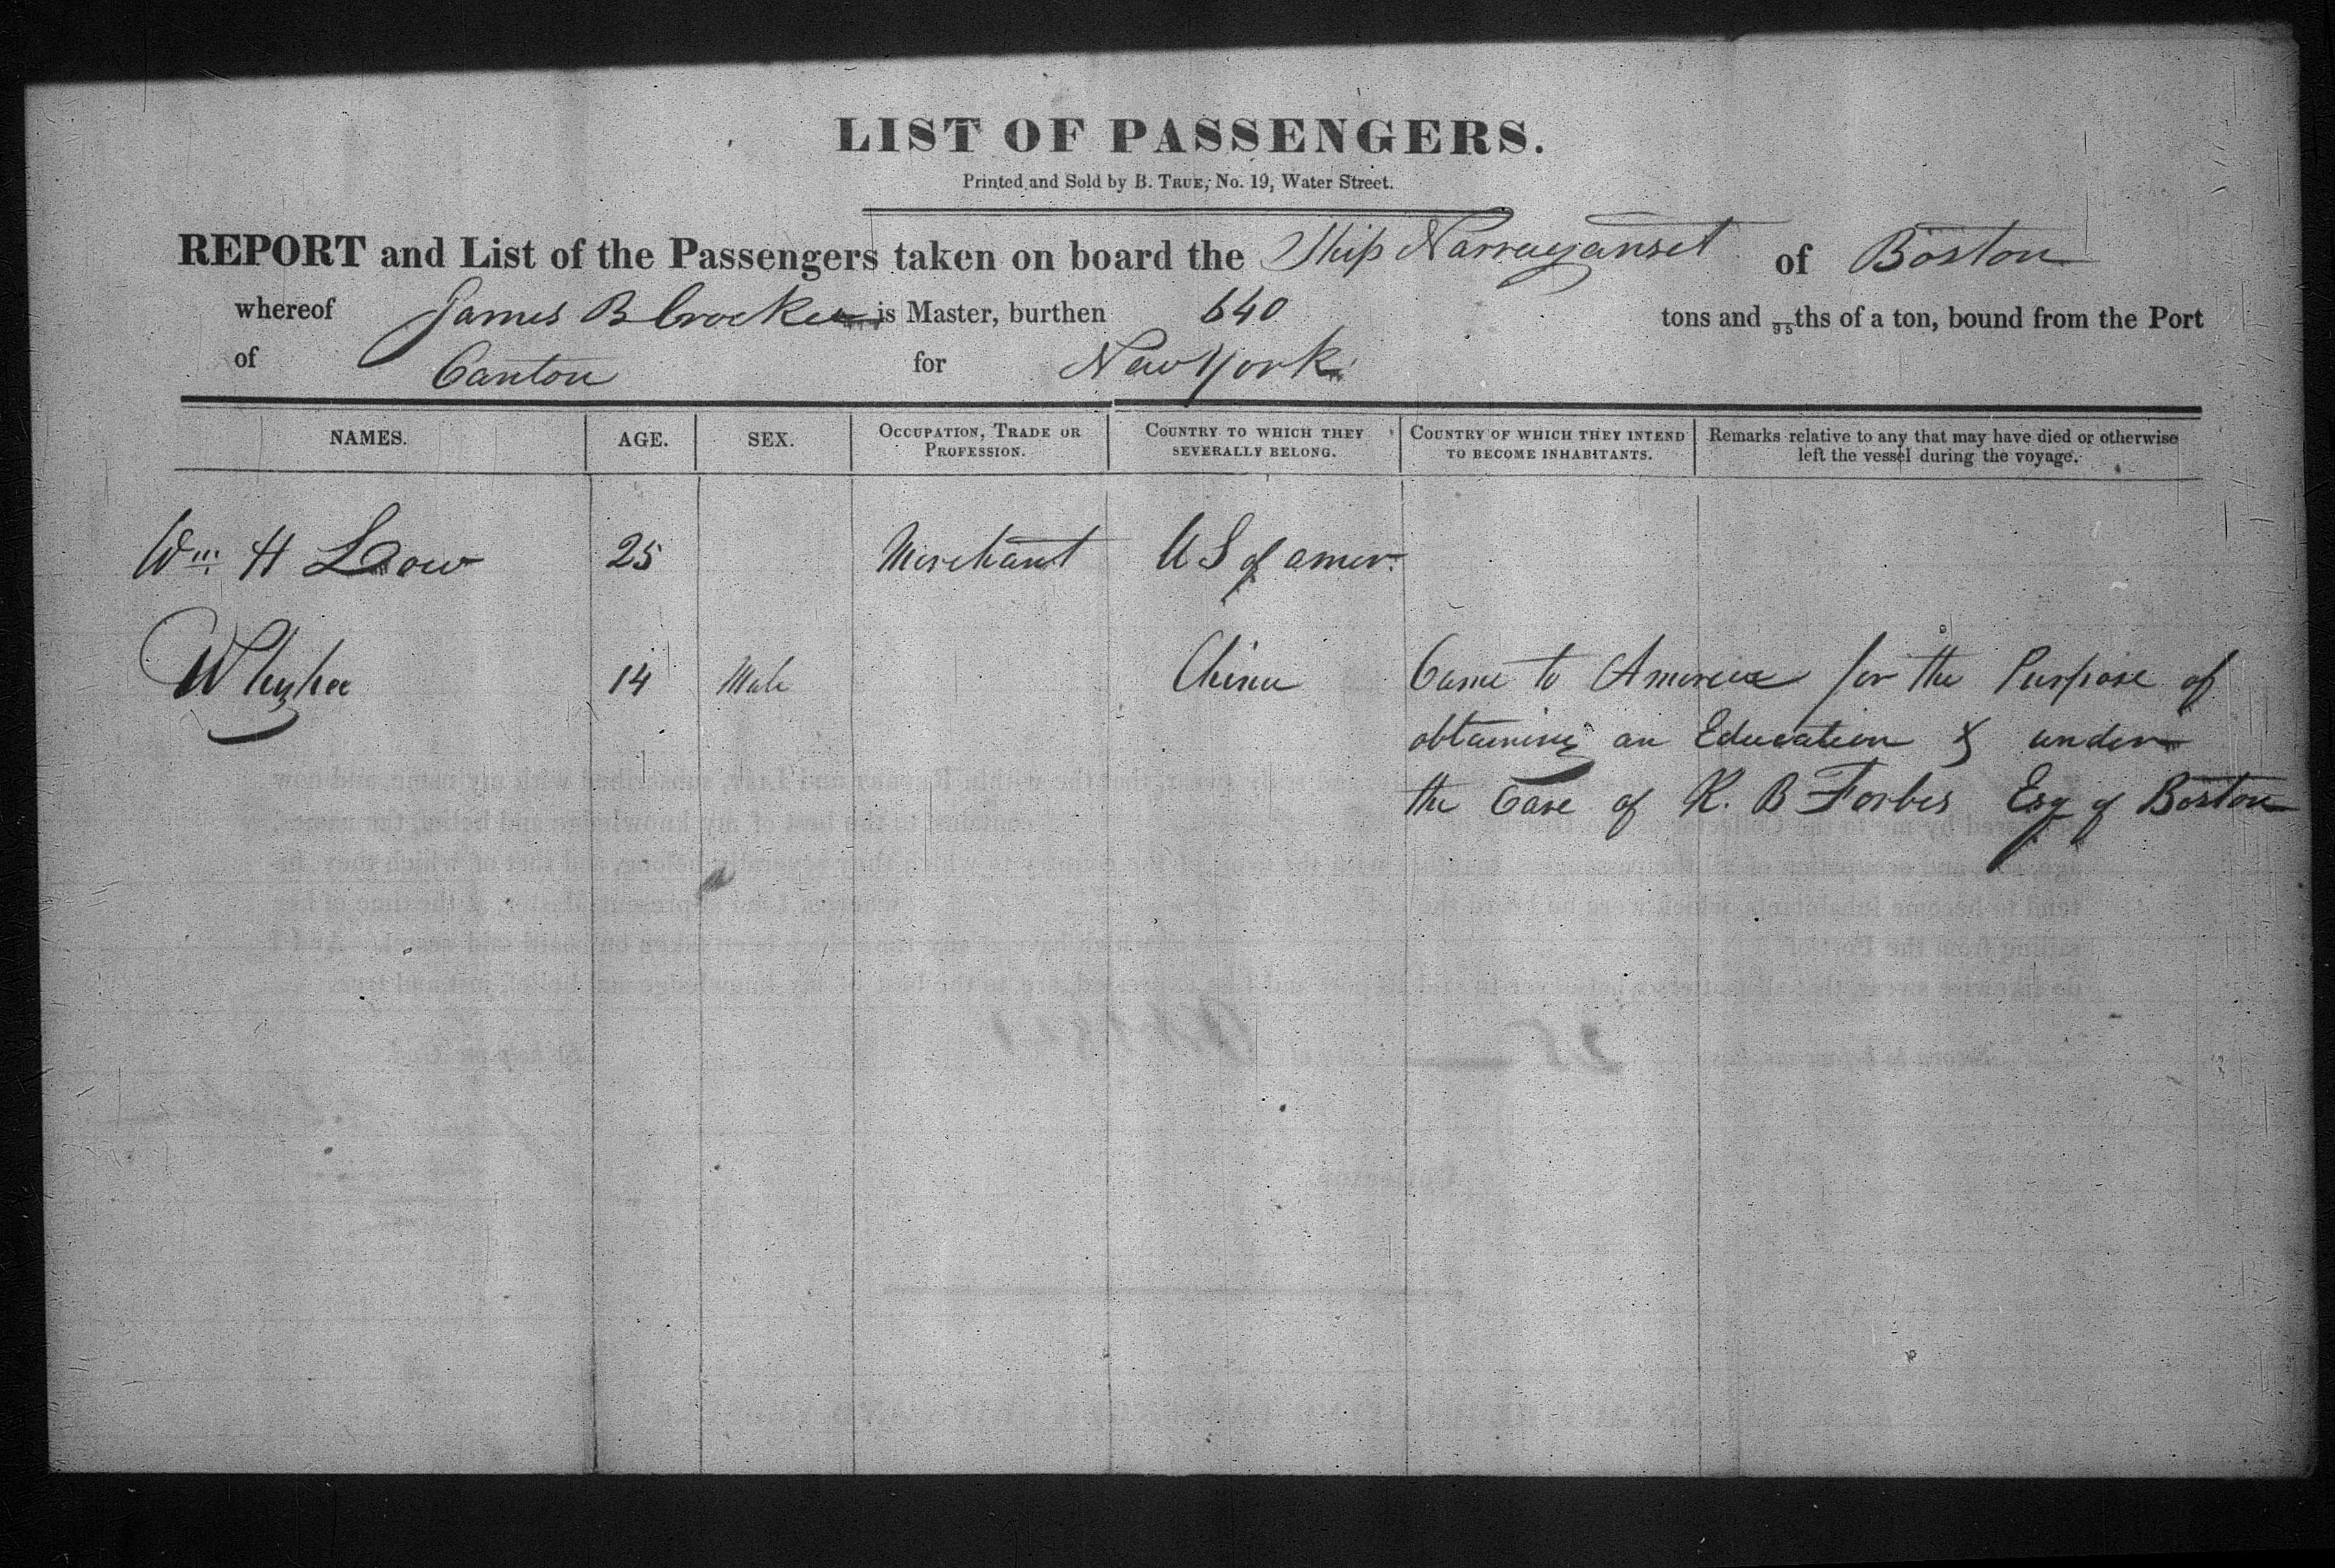 LIST OF PASSENGERS.
Printed and Sold by B. TRUE, No. 19, Water Street.
REPORT and List of the Passengers taken on board the Ship Narraganset of Boston
whereof James B Crocker is Master, burthen 640 tons and 95ths of a ton, bound from the Port
of Canton for New York
NAMES. AGE. SEX. OCCUPATION, TRADE OR PROFESSION. COUNTRY TO WHICH THEY SEVERALLY BELONG. COUNTRY OF WHICH THEY INTEND TO BECOME INHABITANTS. Remarks relative to any that may have died or otherwise left the vessel during the voyage.
Wm. H Low 25 Merchant U S of amer.
14 Male China Came to America for the Purpose of
obtaining an Education & under
the Care of R. B Forbes Esq of Boston